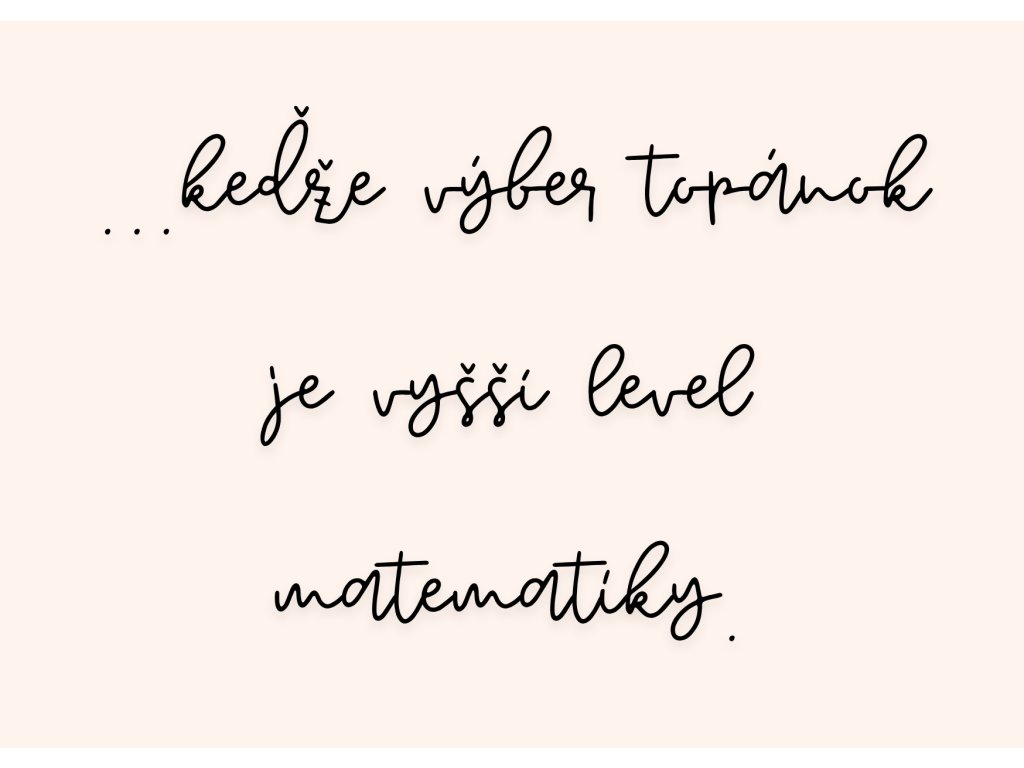 ...keďže výber topánok
je vyšší level
matematiky.